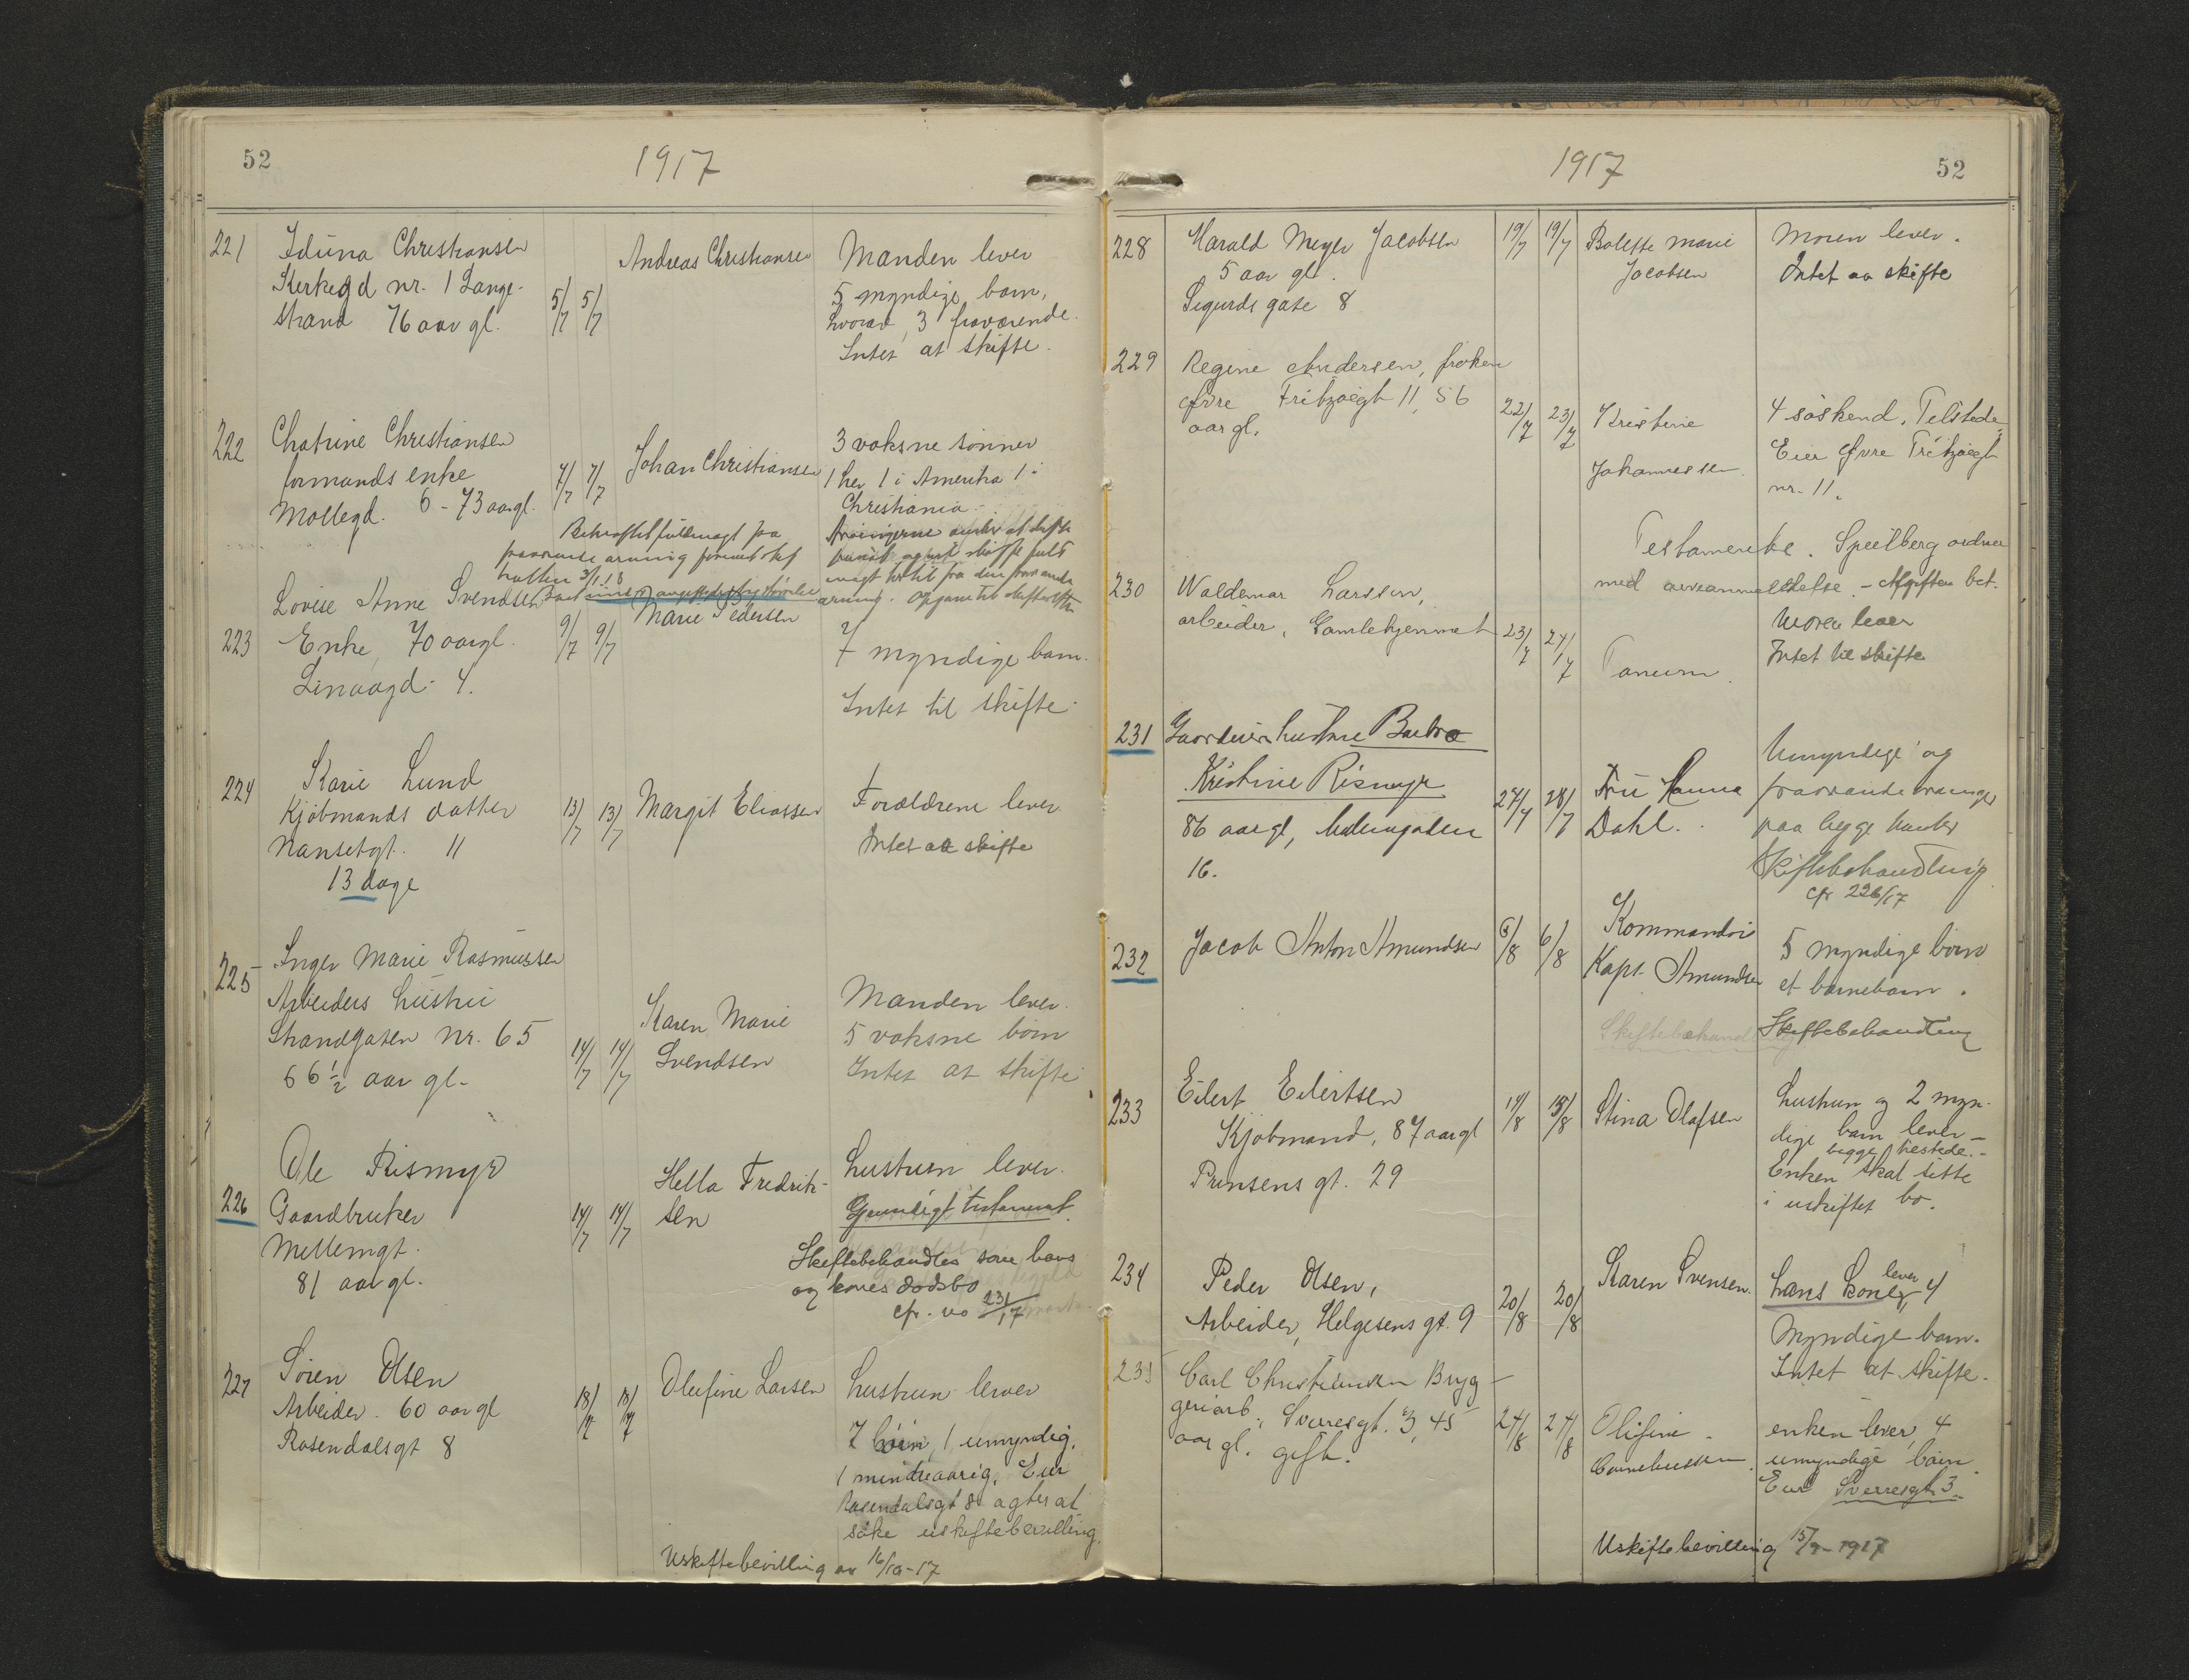 52
1917
221 Iduna Christiansen
Kirkegd nr. 1 Lange-
strand 76 aar gl.
5/7 5/7
Andreas Christiansen
Manden lever
5 myndige barn,
hvorav 3 fraværende.
Intet at skifte.
222 Chatrine Christiansen
formands enke
Møllegd. 6 - 73 aar gl.
7/7 7/7
Johan Christiansen
3 voksne sønner
1 her 1 i Amerika 1 i
Christiania.
Bekræftet fuldmagt fra
fraværende arving
3/1 18
Arvingerne
223 Lovise Anne Svendsen
Enke, 70 aar gl.
Linaagd. 4.
9/7 9/7
Marie Pedersen
7 myndige barn.
Intet til skifte.
224 Karie Lund
Kjøbmands datter
Nansetgt. 11
13 dage
13/7 13/7
Margit Eliassen
Forældrene lever
Intet at skifte
225 Inger Marie Rasmussen
Arbeiders hustru
Strandgaten nr. 65
66 1/2 aar gl.
14/7 14/7
Karen Marie
Svendsen
Manden lever.
5 voksne børn
Intet at skifte
226 Ole Rismyr
Gaardbruker
Mellemgt.
81 aar gl.
14/7 14/7
Hella Fredrik-
sen
hustruen lever.
Gjensidigt testament.
Skiftebehandles som hans
og kones dødsbo
cfr. no 231/17
227 Søren Olsen
Arbeider. 60 aar gl
Rosendalsgt 8
18/7 18/7
Olufine Larsen
hustruen lever
7 børn, 1 umyndig,
1 mindreaarig. Eier
Rosendalsgt 8 agter at
søke uskiftebevilling.
Uskiftebevilling av 16/10-17
1917
52
228 Harald Meyer Jacobsen
5 aar gl.
Sigurds gate 8
19/7 19/7
Bolette Marie
Jacobsen
Moren lever.
Intet aa skifte
229 Regine Andersen, frøken
Øvre Fritzøegt 11, 56
aar gl.
22/7 23/7
Kristine
Johannessen.
4 søskend. Tilstede
Eier Øvre Fritzøegt
nr. 11.
Testamente. Speilberg ordner
med arveanmeldelse. - Afgiften bet.
230 Waldemar Larssen,
arbeider, Gamlehjemmet
23/7 24/7
Tanum.
Moren lever
Intet til skifte
231 Gaardeierhustru Barbra
Kristine Rismyr
86 aar gl, Mellemgaten
16.
27/7 28/7
Fru Hanna
Dahl.
Umyndige og
fraværende arvinger
paa begge kanter
Skiftebehandling
cfr 226/17
232 Jacob Anton Amundsen
6/8 6/8
Kommandør
Kapt. Amundsen
5 myndige børn
et barnebarn.
Skiftebehandling
233 Eilert Eilertsen
Kjøbmand, 87 aar gl
Prinsens gt. 29
14/8 15/8
Stina Olafsen
hustrun og 2 myn-
dige barn lever -
begge tilstede. -
Enken skal sitte
i uskiftet bo.
234 Peder Olsen,
Arbeider, Helgesens gt. 9
20/8 20/8
Karen Svensen.
hans kone lever, 4
Myndige barn.
Intet at skifte.
235 Carl Christiansen Bryg-
geriarb., Sverresgt. 3, 45
aar gl. gift.
24/8 24/8
Olifine
Corneliussen.
enken lever, 4
umyndige børn.
Eier Sverresgt 3.
Uskiftebevilling 15/9-1917